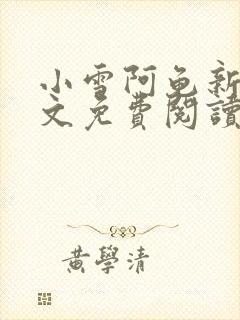 小雪阿龟新
文免費閱讀
黃學清